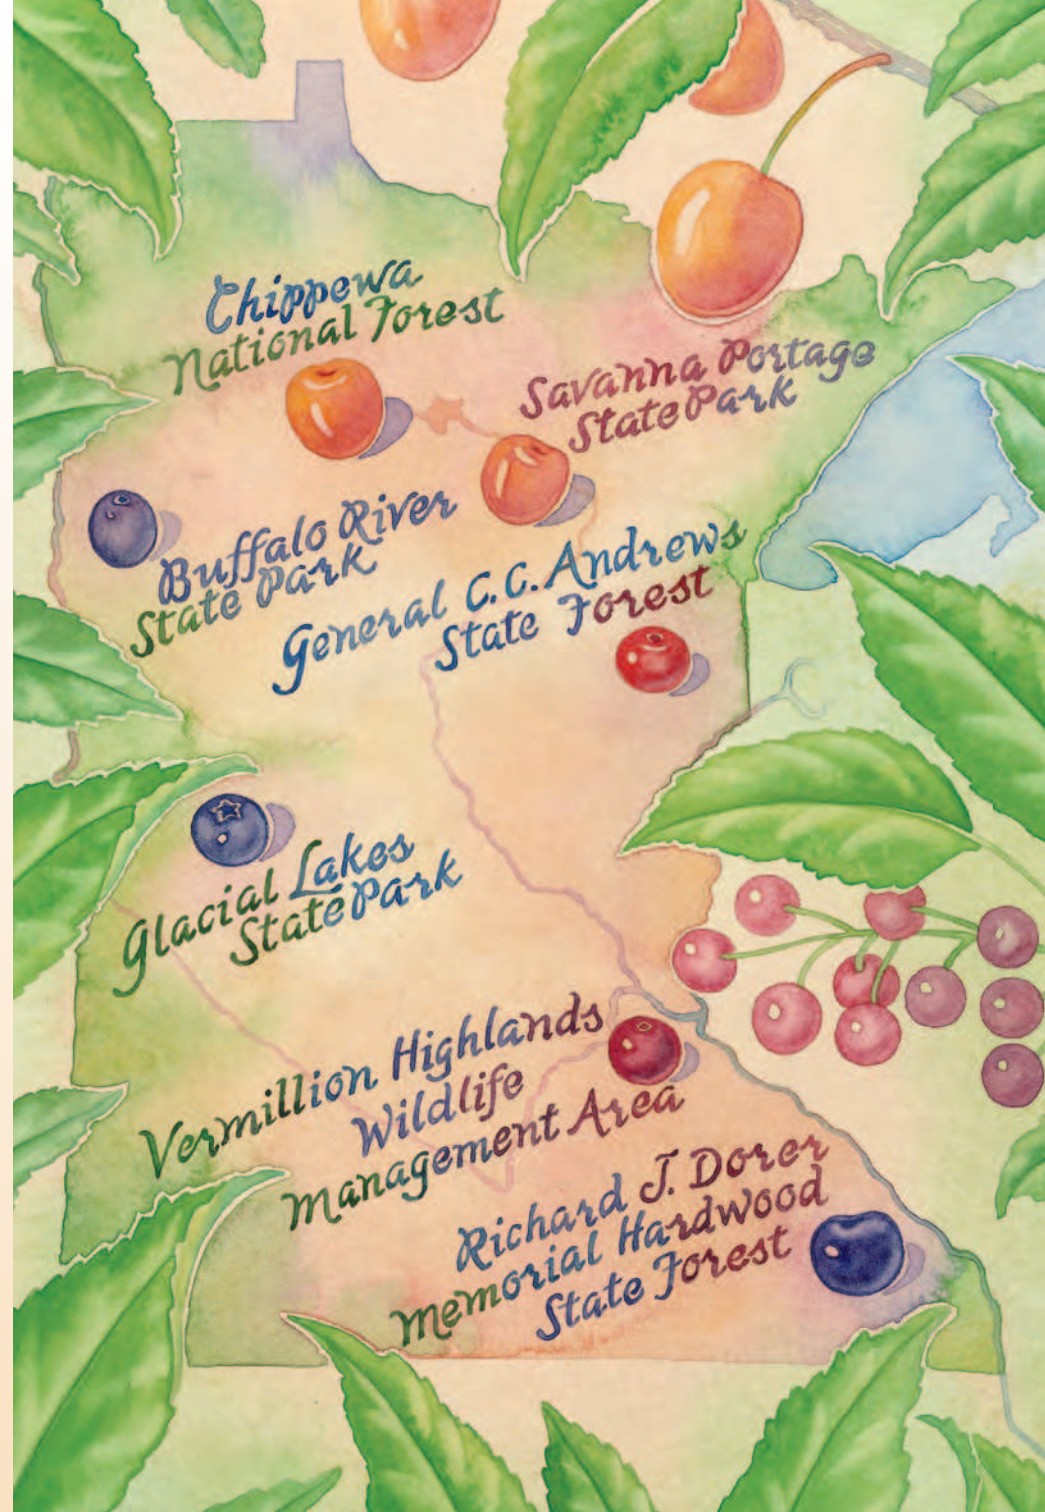 Chippewa
National Forest
Savanna Portage
State Park
Buffalo River
State Park
General C.C. Andrews
State Forest
Glacial Lakes
State Park
Vermillion Highlands
Wildlife
Management Area
Richard J. Dorer
Memorial Hardwood
State Forest